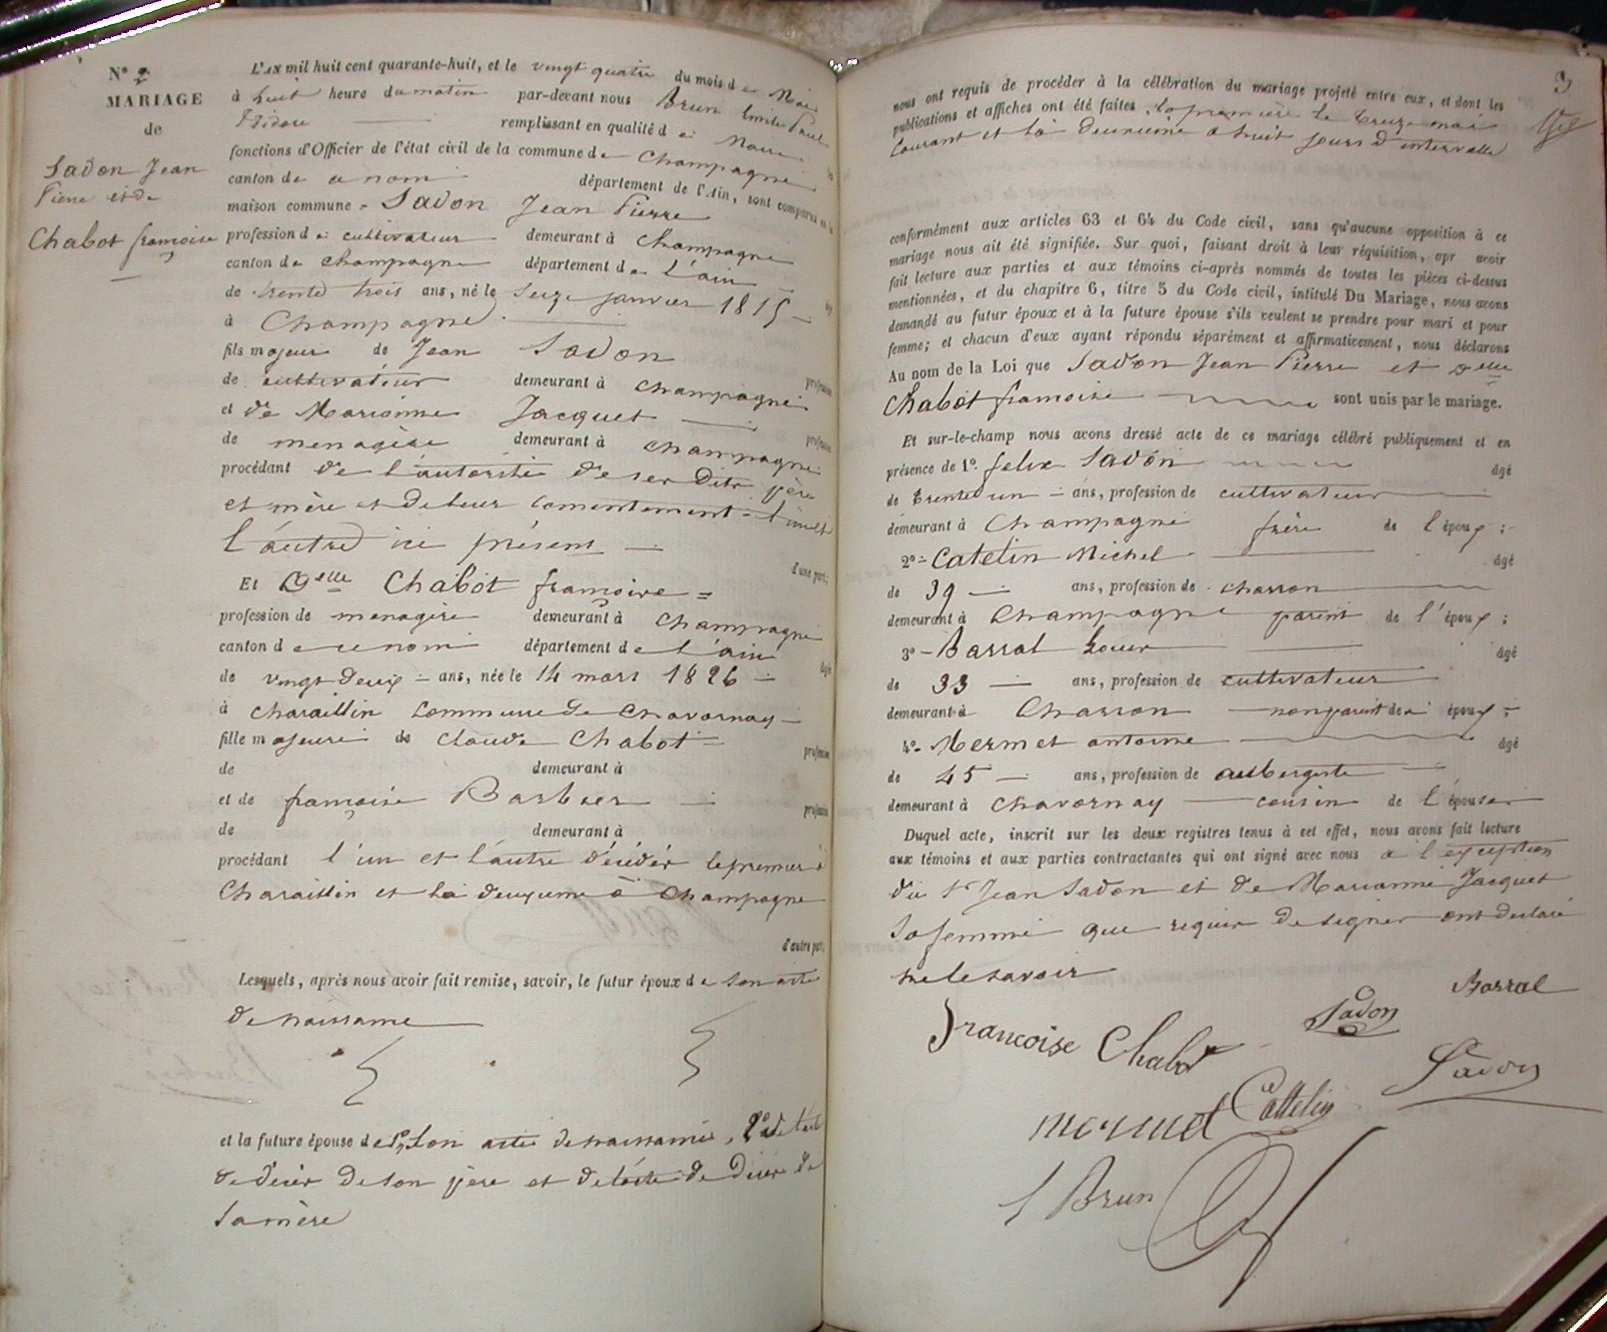 N° 2
MARIAGE
de
Sadon Jean
Pierre et de
Chabot françoise
L'AN mil huit cent quarante-huit, et le vingt quatre du mois de Mai
à huit heure du matin par-devant nous Brun Emile Paul
Isidore remplissant en qualité de Maire
fonctions d'Officier de l'état civil de la commune de Champagne
canton de ce nom département de l'Ain, sont comparus en la
maison commune = Sadon Jean Pierre
profession de cultivateur demeurant à Champagne
canton de Champagne département de L'ain
de trente trois ans, né le seize janvier 1815
à Champagne
fils majeur de Jean Sadon profession
de cultivateur demeurant à Champagne
et de Marianne Jacquet profession
de menagère demeurant à Champagne
procédant de l'autorité de ses dits père
et mère et de leur consentement l'un et
l'autre ici présent
d'une part;
Et Delle Chabot françoise =
profession de menagère demeurant à Champagne
canton de ce nom département de L'ain âgé
de vingt deux ans, née le 14 mars 1826
à Charaillin commune de Chavornay
fille majeure de Claude Chabot profession
de demeurant à
et de françoise Barbier profession
de demeurant à
procédant l'un et l'autre décédés le premier à
Charaillin et la deuxieme à Champagne
d'autre part,
Lesquels, après nous avoir fait remise, savoir, le futur époux de son acte
de naissance
et la future épouse de 1° son acte de naissance, 2° de l'acte
de décès de son père et de l'acte de décès de
sa mère
3
nous ont requis de procéder à la célébration du mariage projeté entre eux, et dont les
publications et affiches ont été faites, la première le treize mai
courant et la deuxieme à huit jours d'intervalle
conformément aux articles 63 et 64 du Code civil, sans qu'aucune opposition à ce
mariage nous ait été signifiée. Sur quoi, faisant droit à leur réquisition, apr avoir
fait lecture aux parties et aux témoins ci-après nommés de toutes les pièces ci-dessus
mentionnées, et du chapitre 6, titre 5 du Code civil, intitulé Du Mariage, nous avons
demandé au futur époux et à la future épouse s'ils veulent se prendre pour mari et pour
femme; et chacun d'eux ayant répondu séparément et affirmativement, nous déclarons
Au nom de la Loi que Sadon Jean Pierre et Delle
Chabot françoise sont unis par le mariage.
Et sur-le-champ nous avons dressé acte de ce mariage célébré publiquement et en
présence de 1°. felix Sadon âgé
de trente un ans, profession de cultivateur
demeurant à Champagne frère de l'époux;
2° Catelin Michel âgé
de 39 ans, profession de charron
demeurant à Champagne parent de l'époux;
3° Barral âgé
de 33 ans, profession de cultivateur
demeurant à Charron non parent de époux;
4° Mermet antoine âgé
de 45 ans, profession de aubergiste
demeurant à Chavornay cousin de l'épouse
Duquel acte, inscrit sur les deux registres tenus à cet effet, nous avons fait lecture
aux témoins et aux parties contractantes qui ont signé avec nous à l'exception
du sr Jean Sadon et de Marianne Jacquet
sa femme que requis de signer ont declaré
ne le savoir
Barral
Sadon
Francoise Chabot
Sadon
Cattelin
mermet
Brun